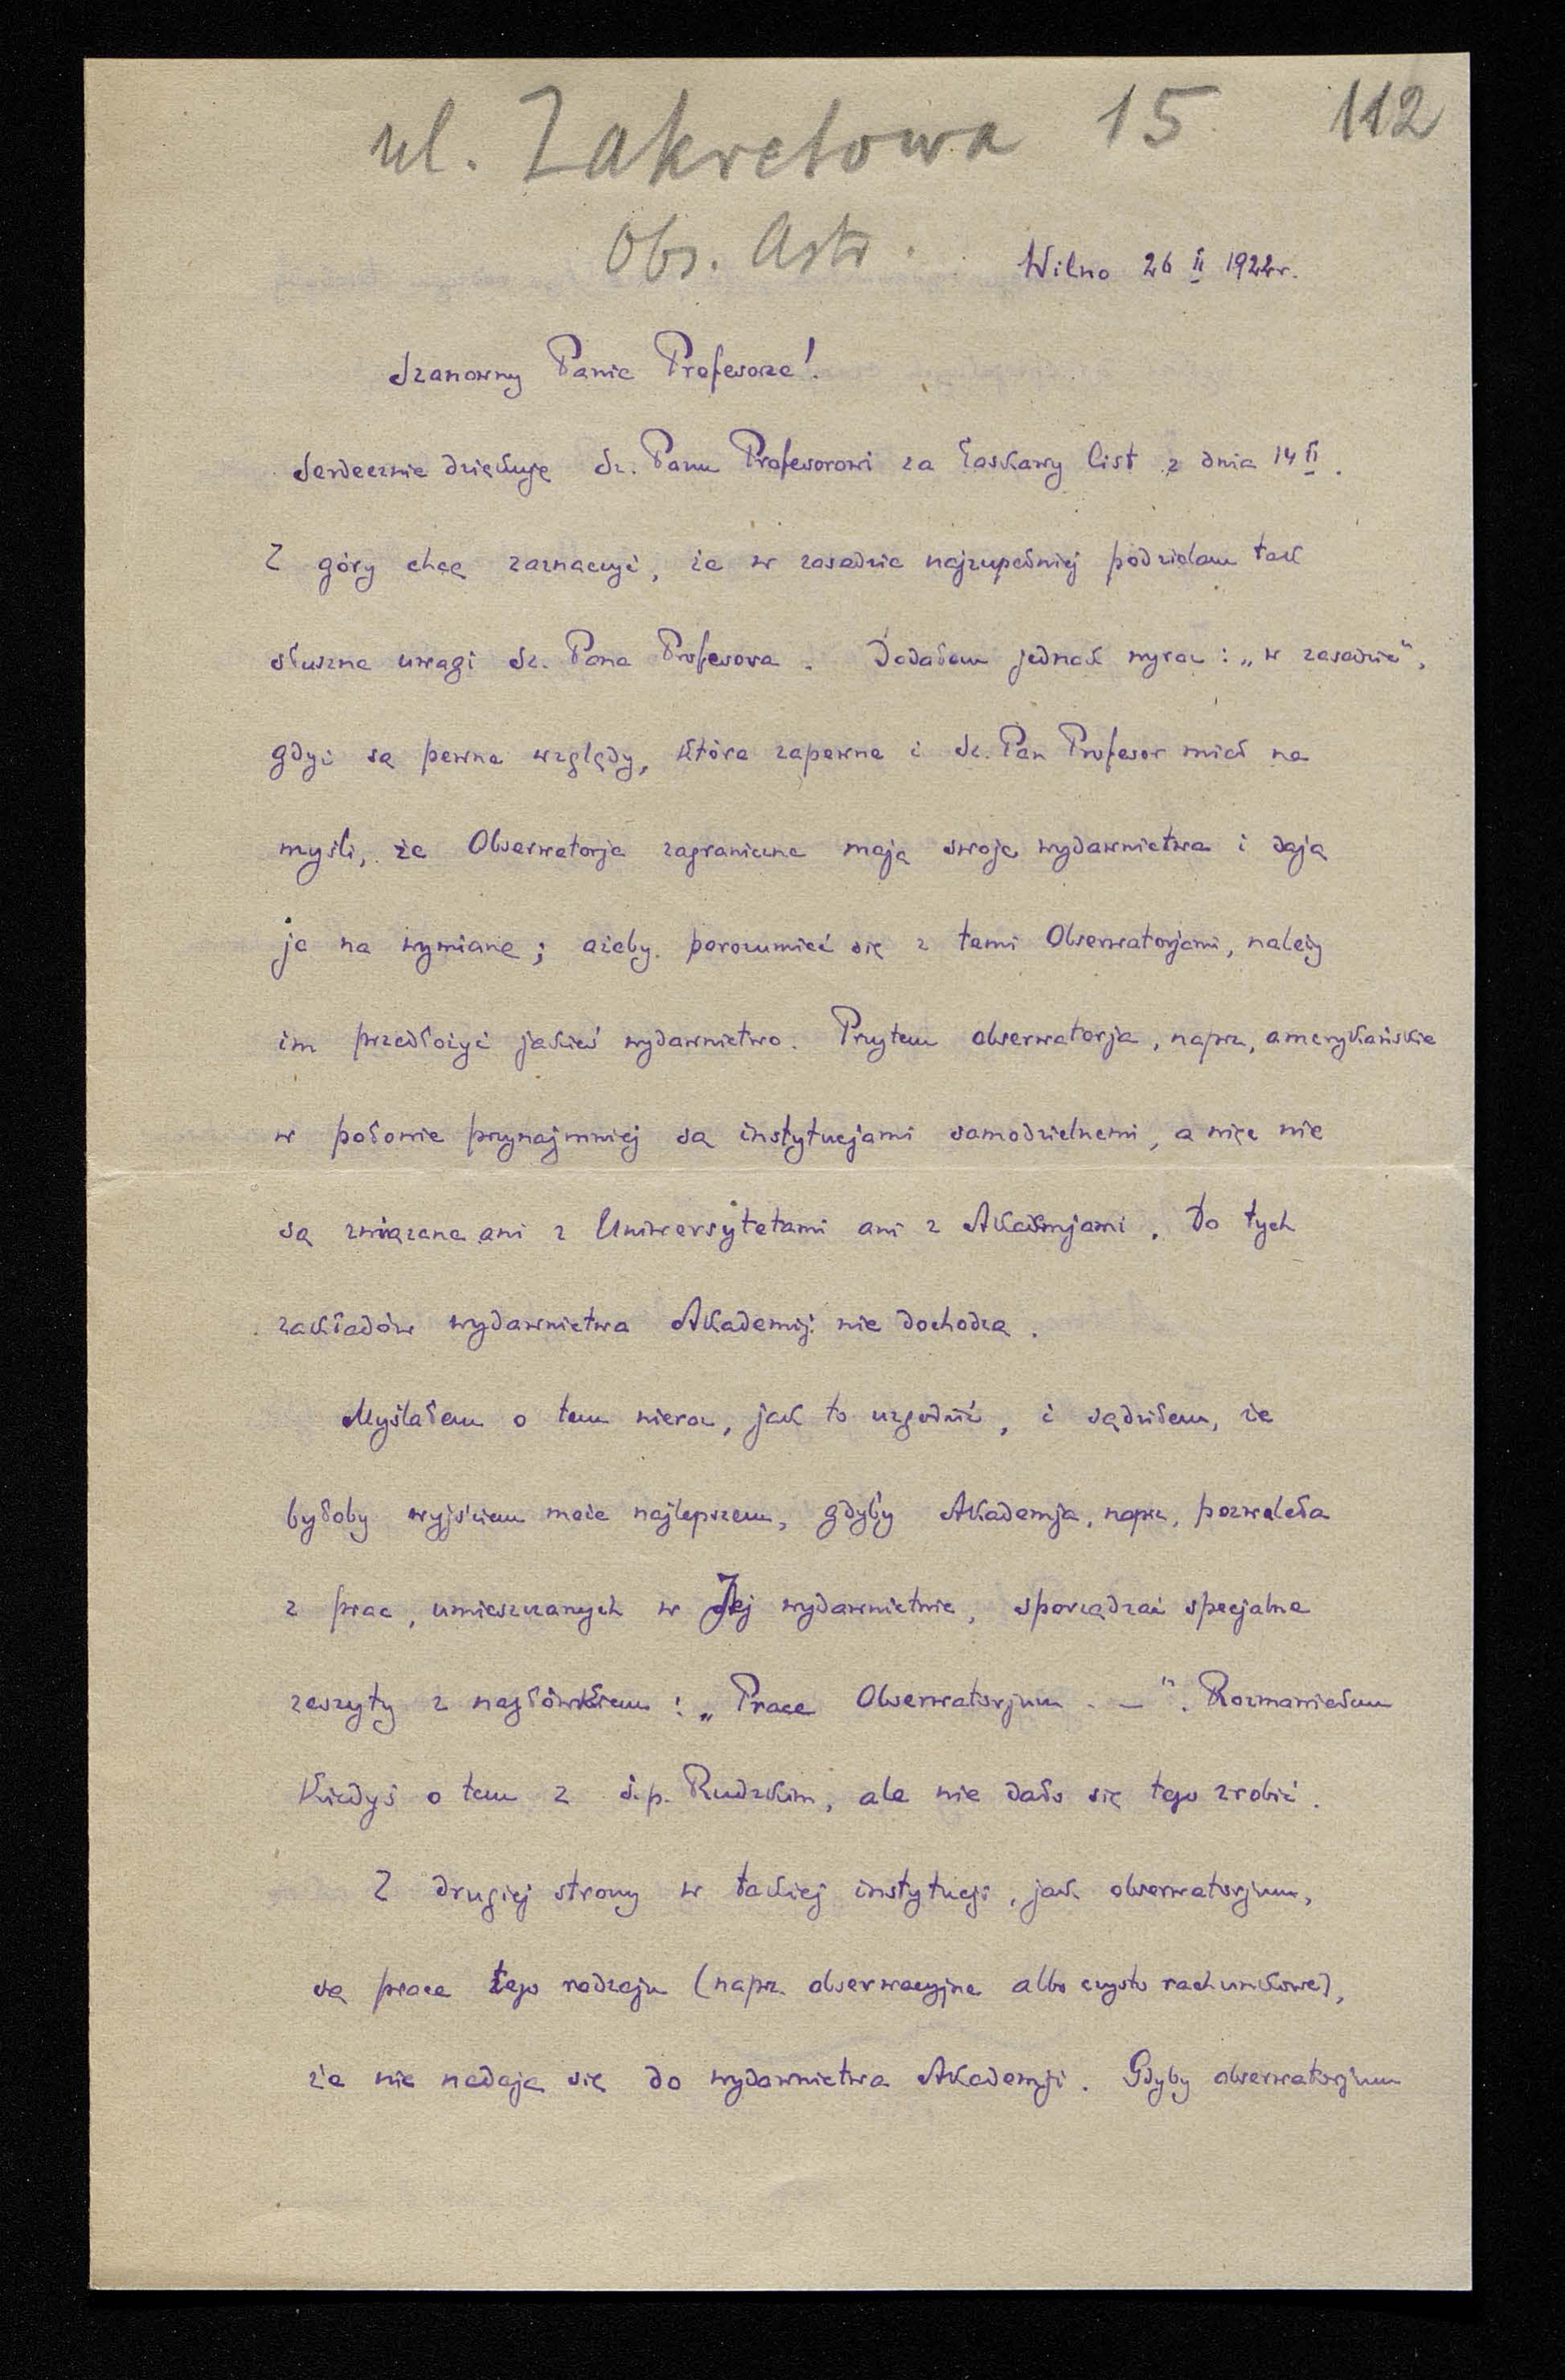 ul. Zakretowa 15 112
Obs. Astr.
Wilno 26 II 1922r.
Szanowny Panie Profesorze!
Serdecznie dziękuję Sz. Panu Profesorowi za łaskawy list z dnia 14 II.
Z góry chcę zaznaczyć, że w zasadzie najzupełniej podzielam tak
słuszne uwagi Sz. Pana Profesora. Dodałem jednak wyraz: „w zasadzie",
gdyż są pewne względy, które zapewne i Sz. Pan Profesor miał na
myśli, że Obserwatorja zagraniczne mają swoje wydawnictwa i dają
je na wymianę; ażeby porozumieć się z temi Obserwatorjami, należy
im przedłożyć jakieś wydawnictwo. Przytem obserwatorja, naprz, amerykańskie
w połowie przynajmniej są instytucjami samodzielnemi, a więc nie
są związane ani z Uniwersytetami ani z Akademjami. Do tych
zakładów wydawnictwa Akademij nie dochodzą.
Myślałem o tem nieraz, jak to uzgodnić, i sądziłem, że
byłoby wyjściem może najlepszem, gdyby Akademja, naprz, pozwalała
z prac, umieszczanych w Jej wydawnictwie, sporządzać specjalne
zeszyty z nagłówkiem: „Prace Obserwatorjum . —". Rozmawiałem
kiedyś o tem z ś.p. Rudzkim, ale nie dało się tego zrobić.
Z drugiej strony w takiej instytucji, jak obserwatorjum,
są prace tego rodzaju (naprz. obserwacyjne albo czysto rachunkowe),
że nie nadają się do wydawnictwa Akademji. Gdyby obserwatorjum